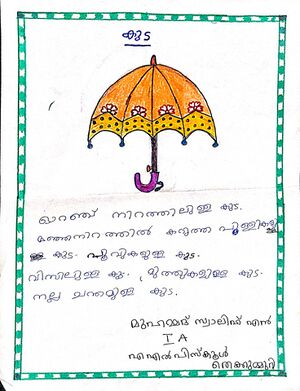 കുട
ഓറഞ്ച് നിറത്തിലുള്ള കുട.
മഞ്ഞനിറത്തിൽ കറുത്ത പുള്ളികളു
ള്ള കുട. പൂവുകളുള്ള കുട.
വിസിലുള്ള കുട. മുത്തുകളുള്ള കുട.
നല്ല ചന്തമുള്ള കുട.
മുഹമ്മദ് സ്വാലിഹ് എൻ
I A
എഎൽപിസ്കൂൾ
തെക്കുമ്മുറി